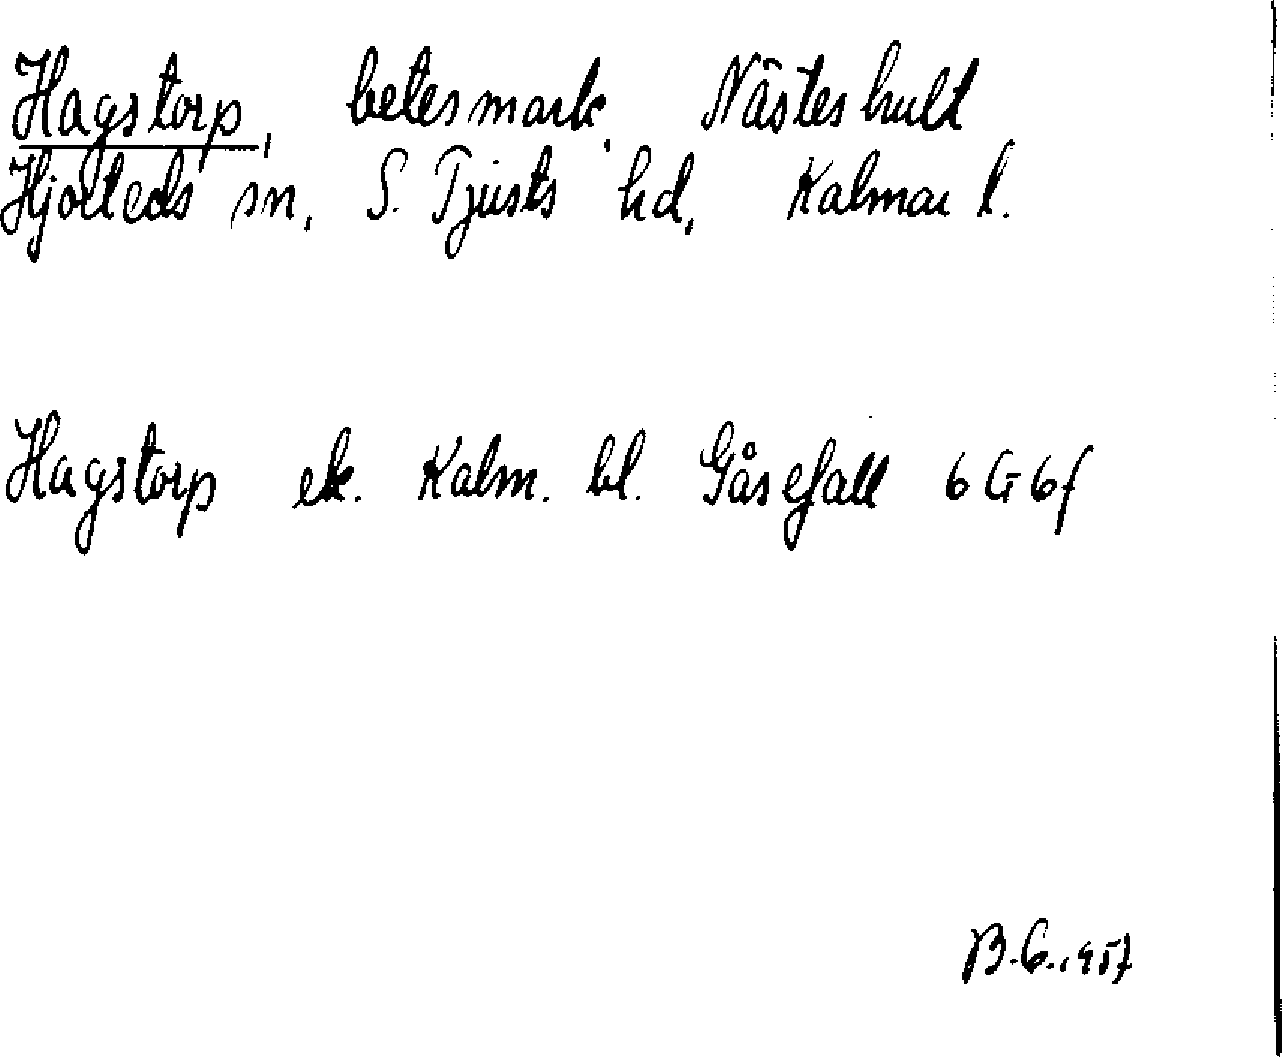 Hagstorp, betesmark, Nästeshult
Hjorteds sn, S. Tjusts hd, Kalmar l.
Hagstorp ek. Kalm. bl. Gåsefall 6G6f
B.G. 1957